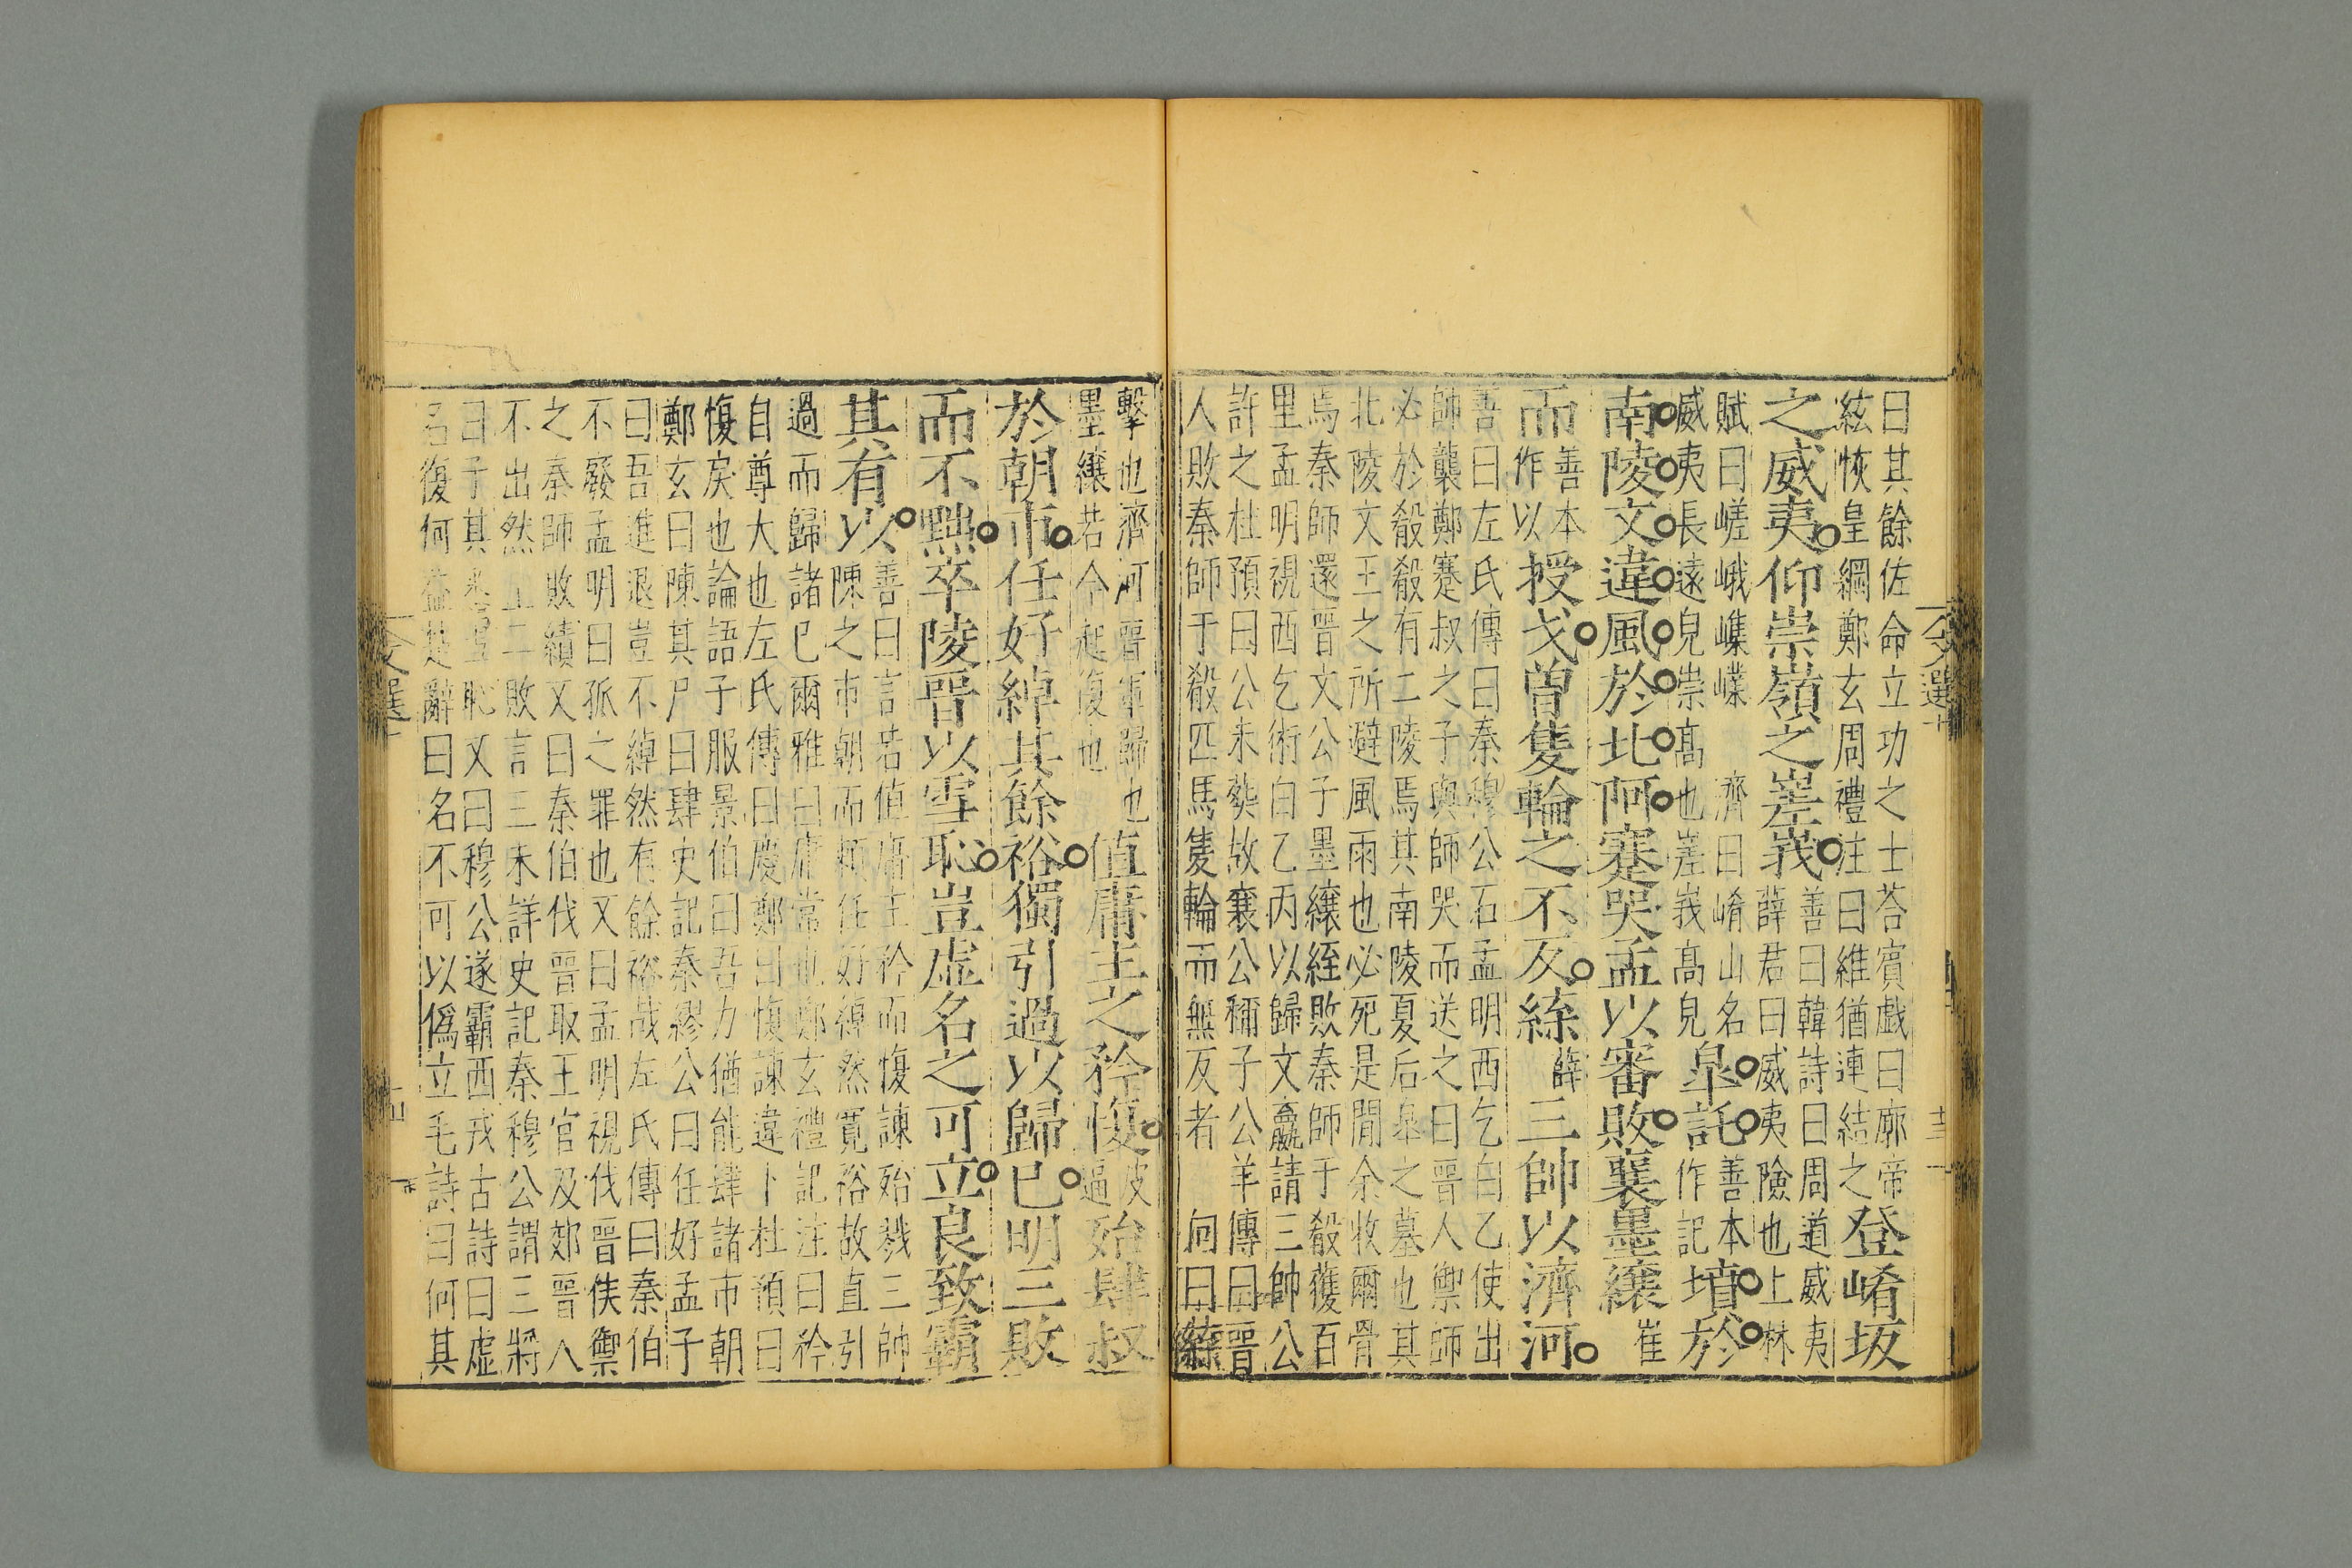 曰其餘佐命立功之士荅賓戲曰廓帝
絃恢皇綱鄭玄周禮注曰維猶連結之登崤坂
之威夷仰崇嶺之嵳峩善曰韓詩曰周道威夷
薛君曰威夷險也上林
賦曰嵯峨嶫嶫 濟曰崤山名
威夷長遠皃崇髙也嵳峩髙皃臯託善本作記墳於
南陵文違風於北阿蹇哭孟以審敗襄墨縗崔
而善本作以授戈曾隻輪之不反緤薛三帥以濟河
善曰左氏傳曰秦穆公召孟明西乞白乙使出
師襲鄭蹇叔之子與師哭而送之曰晉人禦師
必於殽殽有二陵焉其南陵夏后臯之墓也其
北陵文王之所避風雨也必死是閒余收爾骨
焉秦師還晉文公子墨縗絰敗秦師于殽獲百
里孟明視西乞術白乙丙以歸文嬴請三帥公
許之杜預曰公未葬故襄公稱子公羊傳曰晉
人敗秦師于殽匹馬隻輪而無反者 向曰緤
擊也濟河晉軍歸也
墨縗若今起復也值庸主之矜愎皮逼殆肆叔
於朝市任好綽其餘裕獨引過以歸已明三敗
而不黜卒陵晉以雪恥豈虛名之可立良致霸
其有以善曰言若值庸主矜而愎諫殆戮三帥
陳之市朝而須任好綽然寛裕故直引
過而歸諸已爾雅曰庸常也鄭玄禮記注曰矜
自尊大也左氏傳曰慶鄭曰愎諫違卜杜預曰
愎戾也論語子服景伯曰吾力猶能肆諸市朝
鄭玄曰陳其尸曰肆史記秦繆公曰任好孟子
曰吾進退豈不綽然有餘裕哉左氏傳曰秦伯
不廢孟明曰孤之罪也又曰孟明視伐晉侯禦
之秦師敗績又曰秦伯伐晉取王官及郊晉人
不出然止二敗言三未詳史記秦穆公謂三將
曰子其悉 恥又曰穆公遂霸西戎古詩曰虛
名復何益楚辭曰名不可以僞立毛詩曰何其
文選
十三
文選
十四